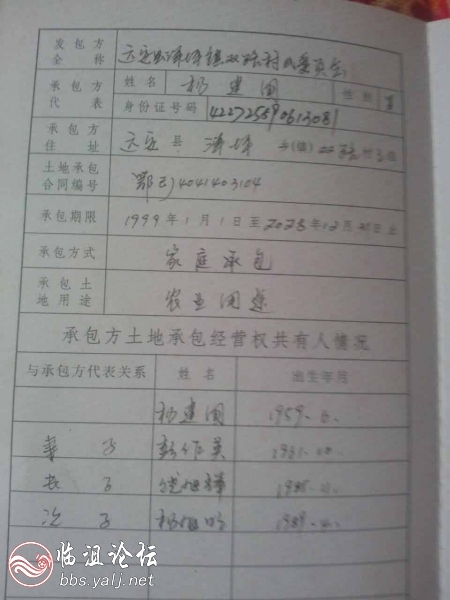 发包方全称 远安县洋坪镇双路村民委员会
承包方代表 姓名 杨建国 性别 男
身份证号码 422725590613081
承包方住址 远安县 洋坪 乡(镇) 双路村 组
土地承包合同编号 鄂 4041403104
承包期限 1999年1月1日至2028年12月31日止
承包方式 家庭承包
承包土地用途 农业用途
承包方土地承包经营权共有人情况
与承包方代表关系 姓名 出生年月
杨建国 1959.6.
妻子 1961.10.
长子
次子 杨旭明
临沮论坛
bbs.yalj.net